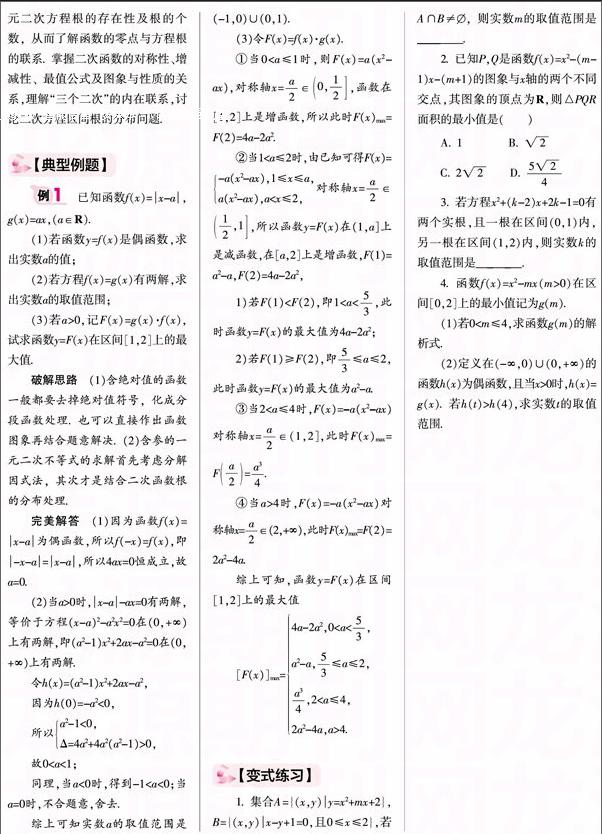 元二次方程根的存在性及根的个
数，从而了解函数的零点与方程根
的联系. 掌握二次函数的对称性、增
减性、最值公式及图象与性质的关
系,理解“三个二次”的内在联系,讨
论二次方程区间根的分布问题.
【典型例题】
例1 已知函数f(x)=|x-a|，
g(x)=ax,(a∈R).
(1)若函数y=f(x)是偶函数,求
出实数a的值；
(2)若方程f(x)=g(x)有两解,求
出实数a的取值范围；
(3)若a>0,记F(x)=g(x)·f(x)，
试求函数y=F(x)在区间[1,2]上的最
大值.
破解思路 (1)含绝对值的函数
一般都要去掉绝对值符号，化成分
段函数处理. 也可以直接作出函数
图象再结合题意解决. (2)含参的一
元二次不等式的求解首先考虑分解
因式法，其次才是结合二次函数根
的分布处理.
完美解答 (1)因为函数f(x)=
|x-a|为偶函数,所以f(-x)=f(x),即
|-x-a|=|x-a|,所以4ax=0恒成立,故
a=0.
(2)当a>0时,|x-a|-ax=0有两解，
等价于方程(x-a)²-a²x²=0在(0,+∞)
上有两解,即(a²-1)x²+2ax-a²=0在(0，
+∞)上有两解.
令h(x)=(a²-1)x²+2ax-a²，
因为h(0)=-a²<0，
所以{a²-1<0，
Δ=4a²+4a²(a²-1)>0，
故0<a<1；
同理,当a<0时,得到-1<a<0；当
a=0时,不合题意,舍去.
综上可知实数a的取值范围是
(-1,0)∪(0,1).
(3)令F(x)=f(x)·g(x).
①当0<a≤1时,则F(x)=a(x²-
ax),对称轴x=a/2∈(0,1/2],函数在
[1,2]上是增函数,所以此时F(x)max=
F(2)=4a-2a².
②当1<a≤2时,由已知可得F(x)=
{-a(x²-ax),1≤x≤a，
a(x²-ax),a<x≤2，对称轴x=a/2∈
(1/2,1],所以函数y=F(x)在(1,a]上
是减函数,在[a,2]上是增函数,F(1)=
a²-a,F(2)=4a-2a²，
1)若F(1)<F(2),即1<a<5/3,此
时函数y=F(x)的最大值为4a-2a²；
2)若F(1)≥F(2),即5/3≤a≤2，
此时函数y=F(x)的最大值为a²-a.
③当2<a≤4时,F(x)=-a(x²-ax)
对称轴x=a/2∈(1,2],此时F(x)max=
F(a/2)=a³/4.
④当a>4时,F(x)=-a(x²-ax)对
称轴x=a/2∈(2,+∞),此时F(x)max=F(2)=
2a²-4a.
综上可知,函数y=F(x)在区间
[1,2]上的最大值
[F(x)]max={4a-2a²,0<a<5/3，
a²-a,5/3≤a≤2，
a³/4,2<a≤4，
2a²-4a,a>4.
【变式练习】
1. 集合A={(x,y)|y=x²+mx+2}，
B={(x,y)|x-y+1=0,且0≤x≤2},若
A∩B≠∅，则实数m的取值范围是
________.
2. 已知P,Q是函数f(x)=x²-(m-
1)x-(m+1)的图象与x轴的两个不同
交点,其图象的顶点为R,则△PQR
面积的最小值是( )
A. 1 B. √2
C. 2√2 D. 5√2/4
3. 若方程x²+(k-2)x+2k-1=0有
两个实根,且一根在区间(0,1)内，
另一根在区间(1,2)内,则实数k的
取值范围是________.
4. 函数f(x)=x²-mx(m>0)在区
间[0,2]上的最小值记为g(m).
(1)若0<m≤4,求函数g(m)的解
析式.
(2)定义在(-∞,0)∪(0,+∞)的
函数h(x)为偶函数,且当x>0时,h(x)=
g(x). 若h(t)>h(4),求实数t的取值
范围.